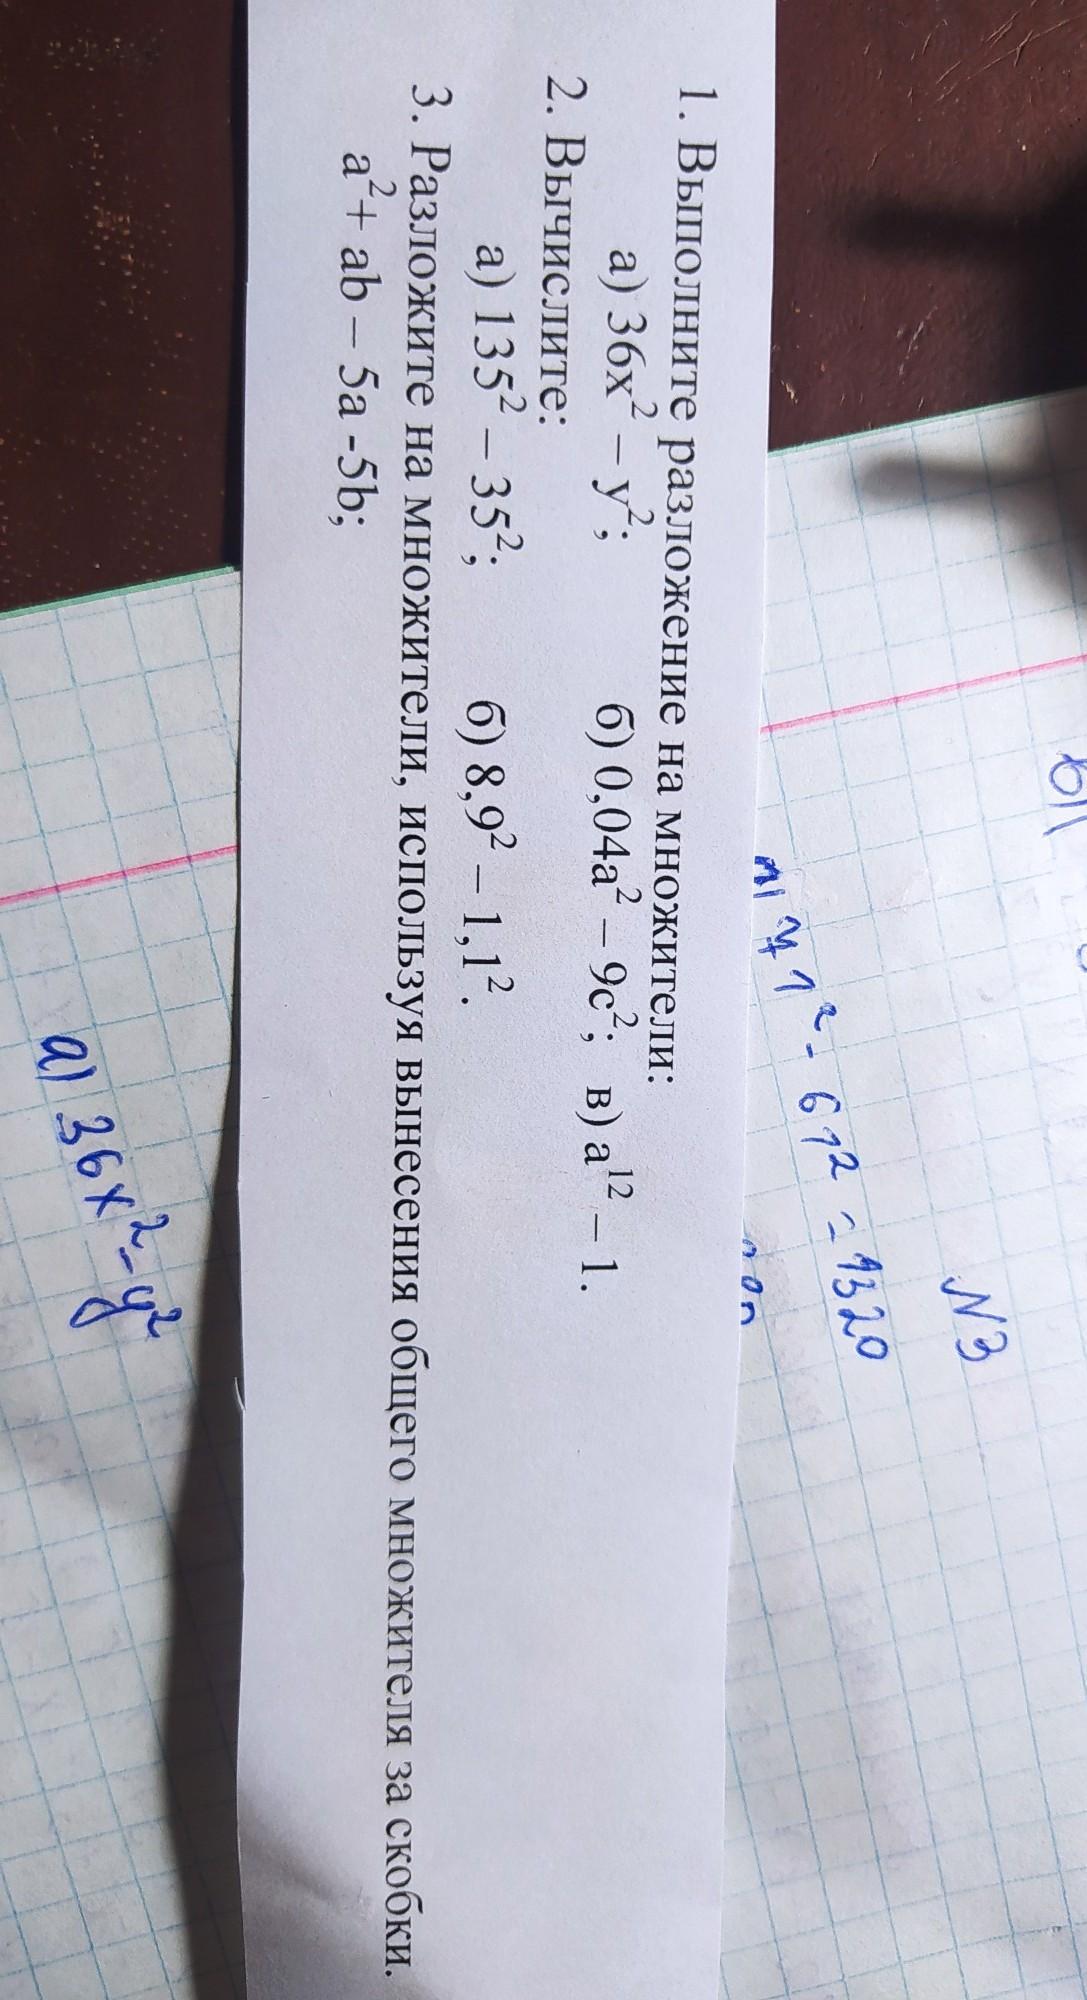 1. Выполните разложение на множители:
а) 36x² – y²; б) 0,04a² – 9c²; в) a¹² – 1.
2. Вычислите:
а) 135² – 35²; б) 8,9² – 1,1².
3. Разложите на множители, используя вынесения общего множителя за скобки.
a²+ ab – 5a -5b;
N3
71² - 61² = 1320
а) 36x² - y²